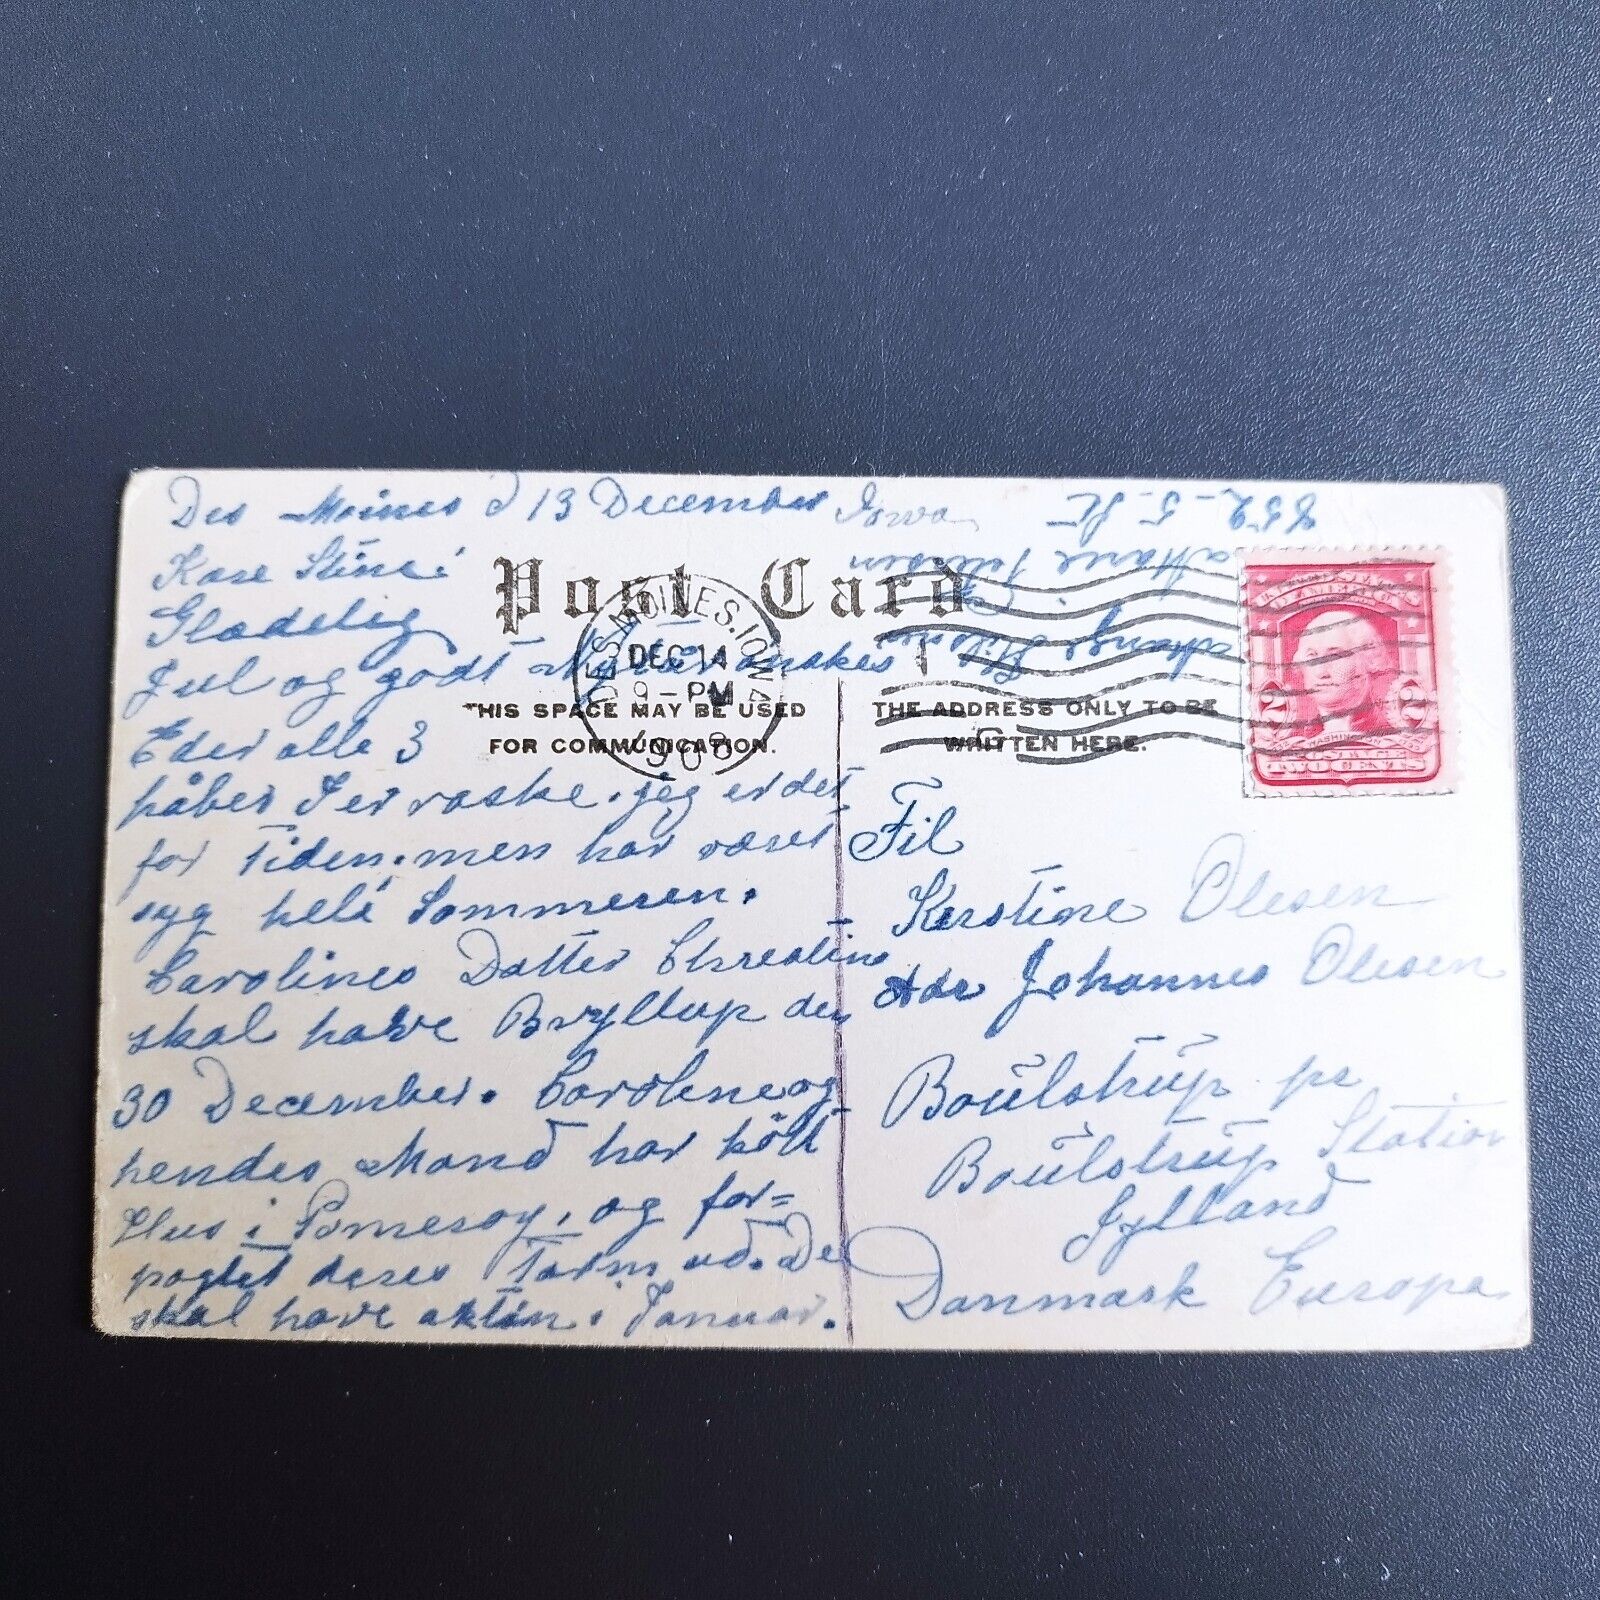 Des Moines d 13 December Iowa
Kære Stine!
Glædelig
Jul og godt Nytår ønskes
Eder alle 3
håber I er raske. jeg er det
for Tiden. men har været
syg hele Sommeren.
Carolines Datter Chrestine
skal have Bryllup den
30 December. Caroline og
hendes Mand har köbt
Hus i Pomeroy. og for=
pagtet deres Farm ud. De
skal have aktion i Januar.
852 - 5 St
Marie
Post Card
THIS SPACE MAY BE USED
FOR COMMUNICATION.
THE ADDRESS ONLY TO BE
WRITTEN HERE.
DES MOINES, IOWA
DEC 14
9 - PM
1908
WASHINGTON
TWO CENTS
2 2
Til
Kerstine Olesen
Adr Johannes Olesen
Boŭlstrŭp pr
Boŭlstrŭp Station
Jylland
Danmark Europa